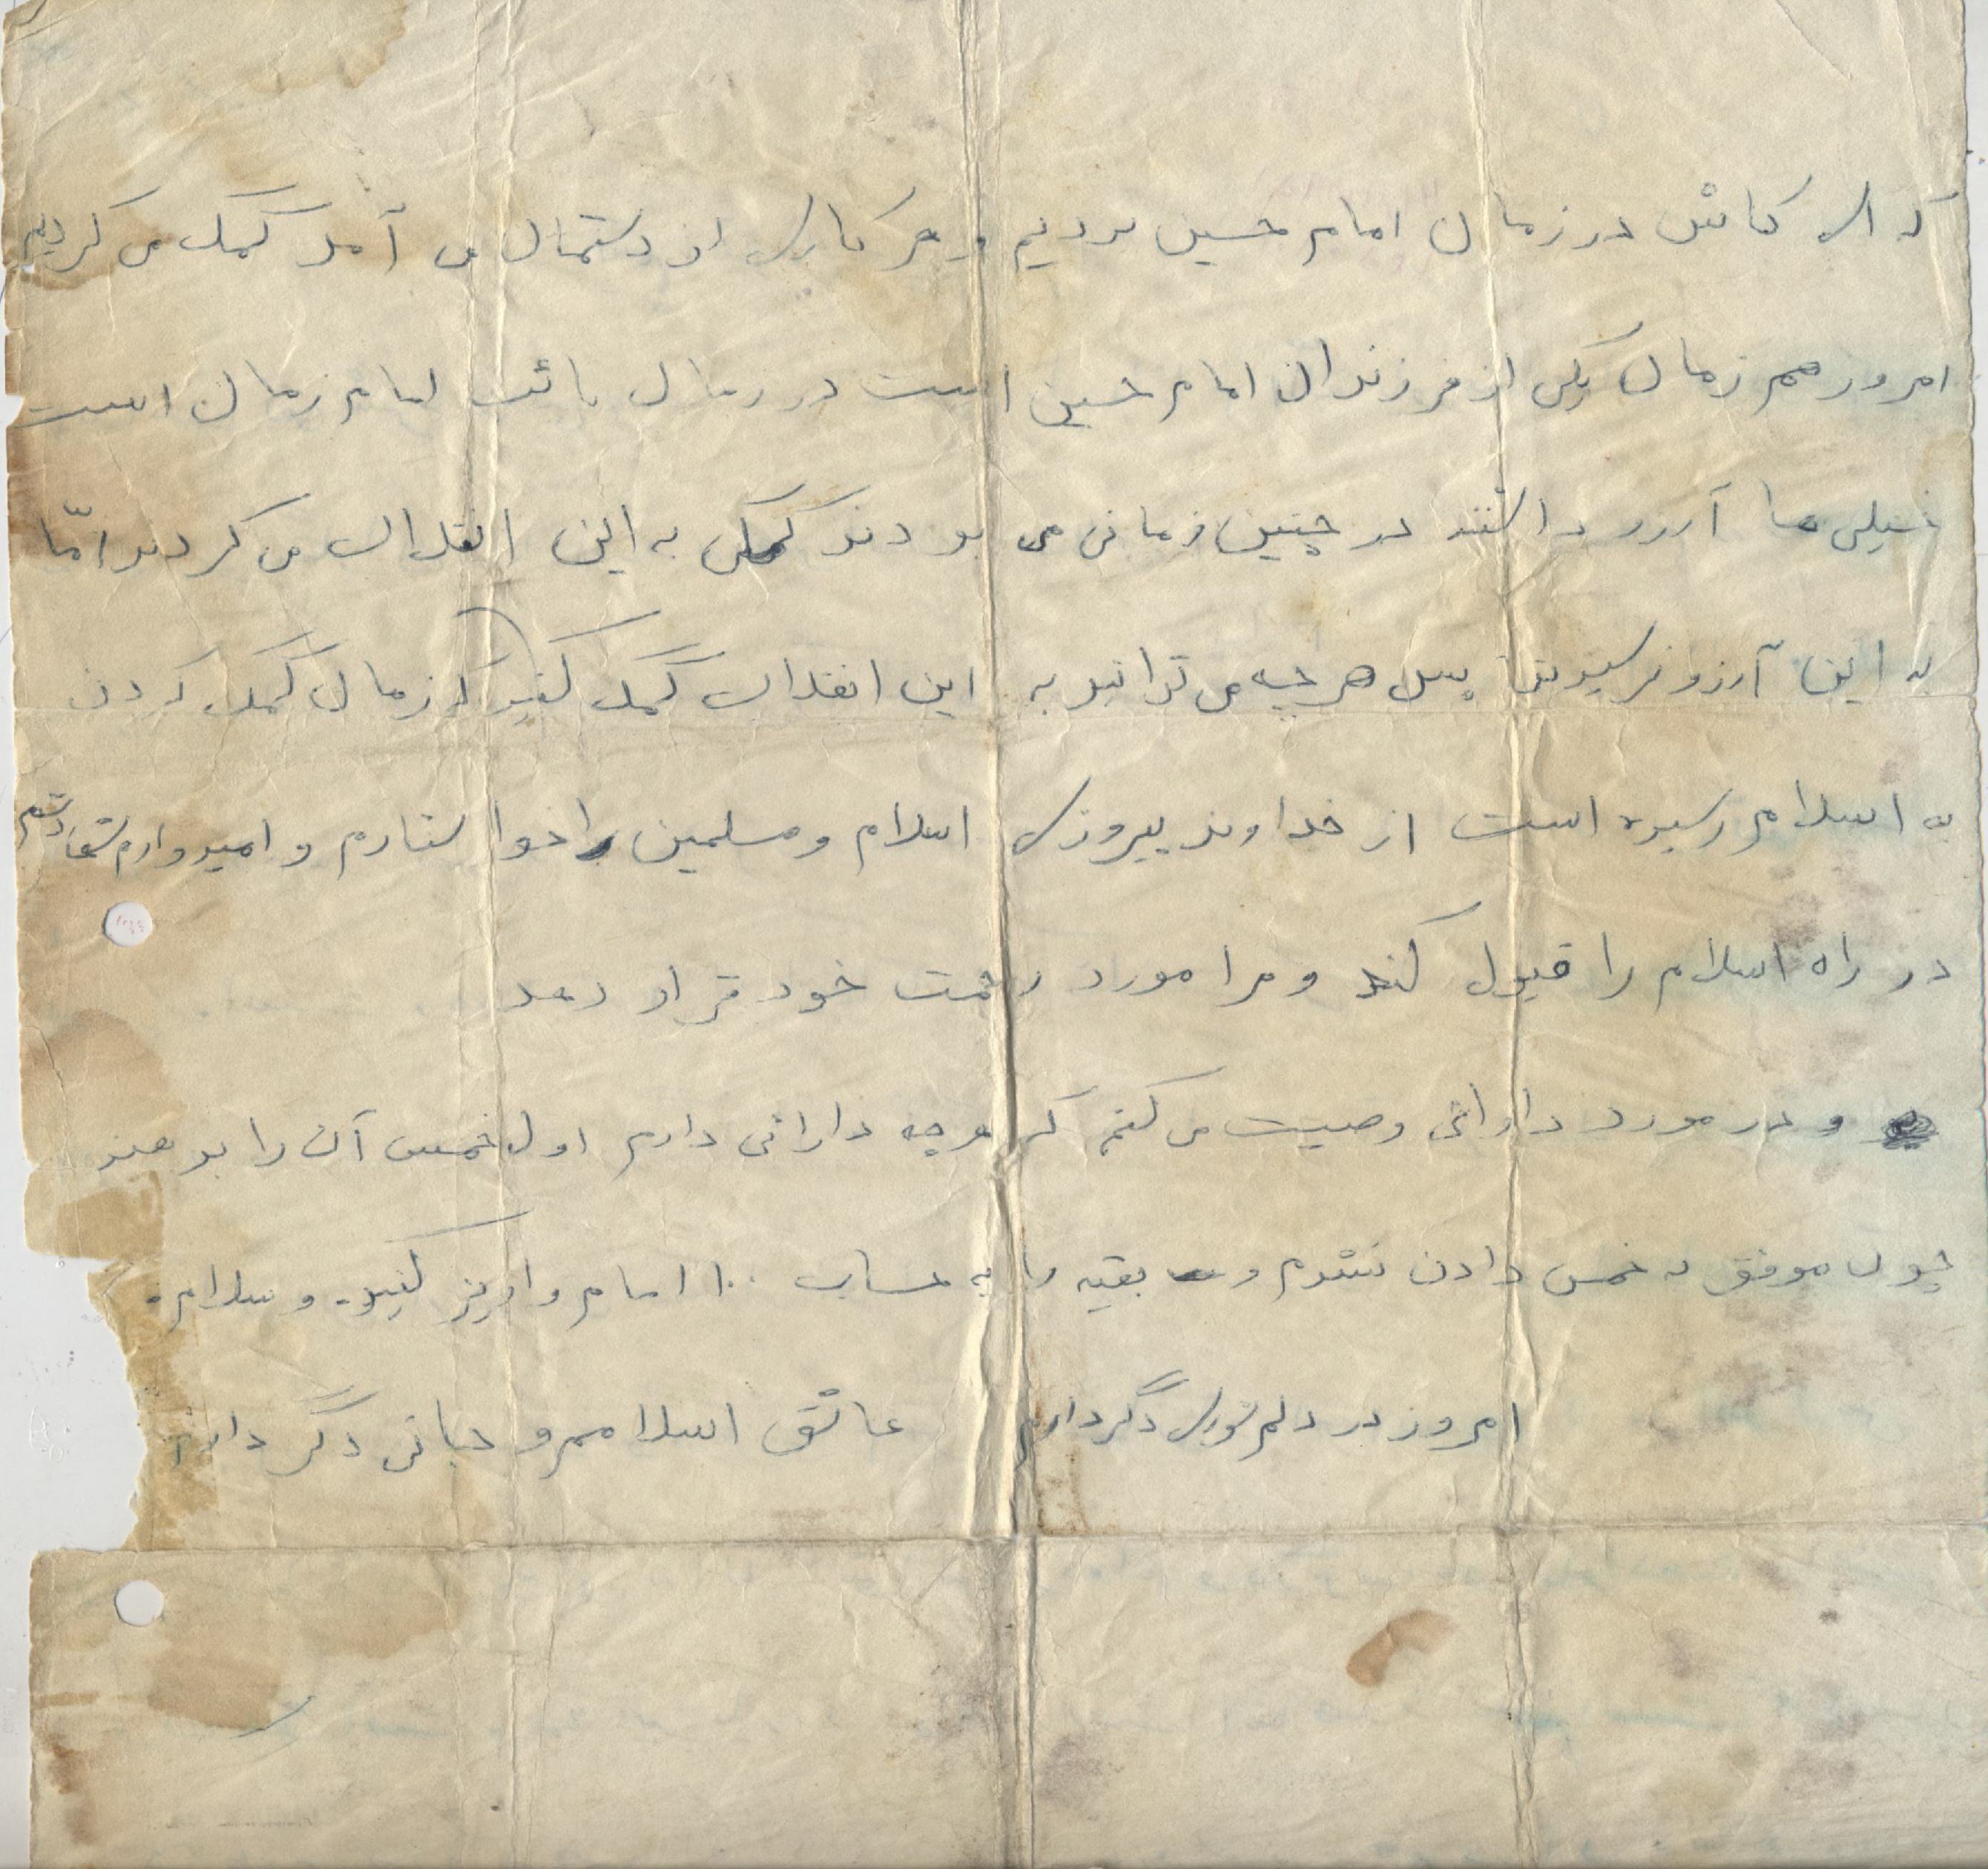 که ای کاش در زمان امام حسین بودیم و هر کاری از دستمان می آمد کمک می کردیم
امروز هم زمان یکی از فرزندان امام حسین است در زمان نائب امام زمان است
خیلی ها آرزو داشتند در چنین زمانی می بودند کمکی به این انقلاب می کردند امّا
به این آرزو نرسیدند پس هر چه می توانید به این انقلاب کمک کنید که زمان کمک کردن
به اسلام رسیده است از خداوند پیروزی اسلام و مسلمین را خواستارم و امیدوارم شهادتم
در راه اسلام را قبول کند و مرا مورد رحمت خود قرار دهد
و در مورد دارائی وصیت می کنم که هر چه دارائی دارم اول خمس آن را بدهند
چون موفق به خمس دادن نشدم و بقیه را به حساب ۱۰۰ امام واریز کنید. و سلام.
امروز در دلم شوری دگر دارم عاشق اسلامم و جانی دگر دارم